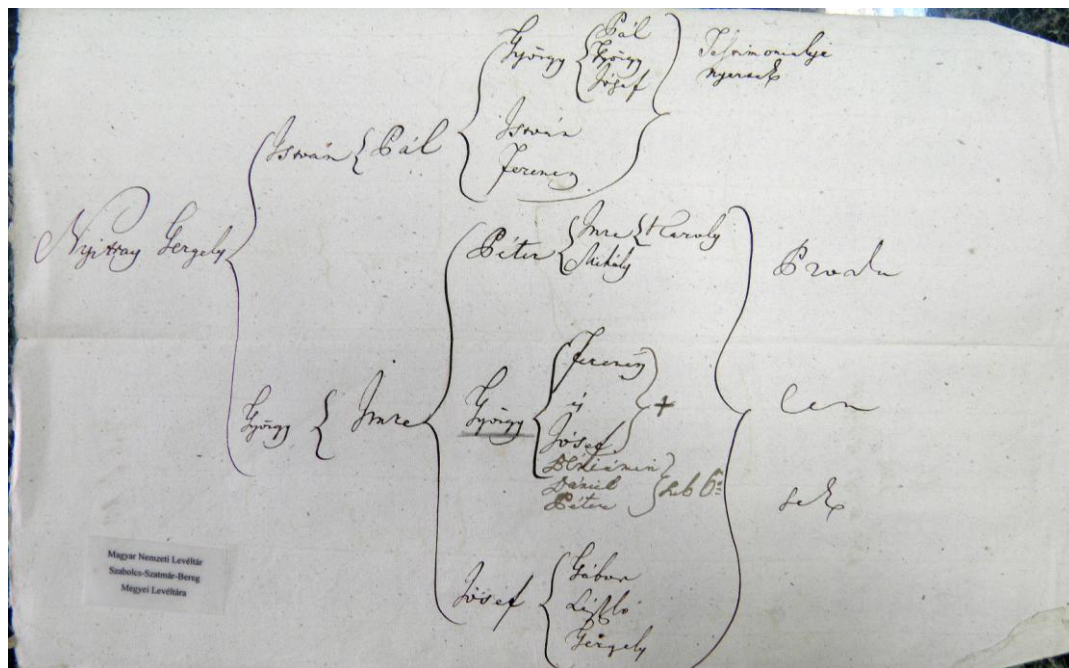 Nyitray Gergely
István
Pál
György
Pál
György
Jósef
István
Ferencz
Testimonialist
nyernek
György
Imre
Péter
Imre
Károly
Mihály
György
Ferencz
és
Jósef
+
Béniámin
Dániel
Péter
Jósef
Gábor
László
Gergely
Produ
cen
sek
Magyar Nemzeti Levéltár
Szabolcs-Szatmár-Bereg
Megyei Levéltára